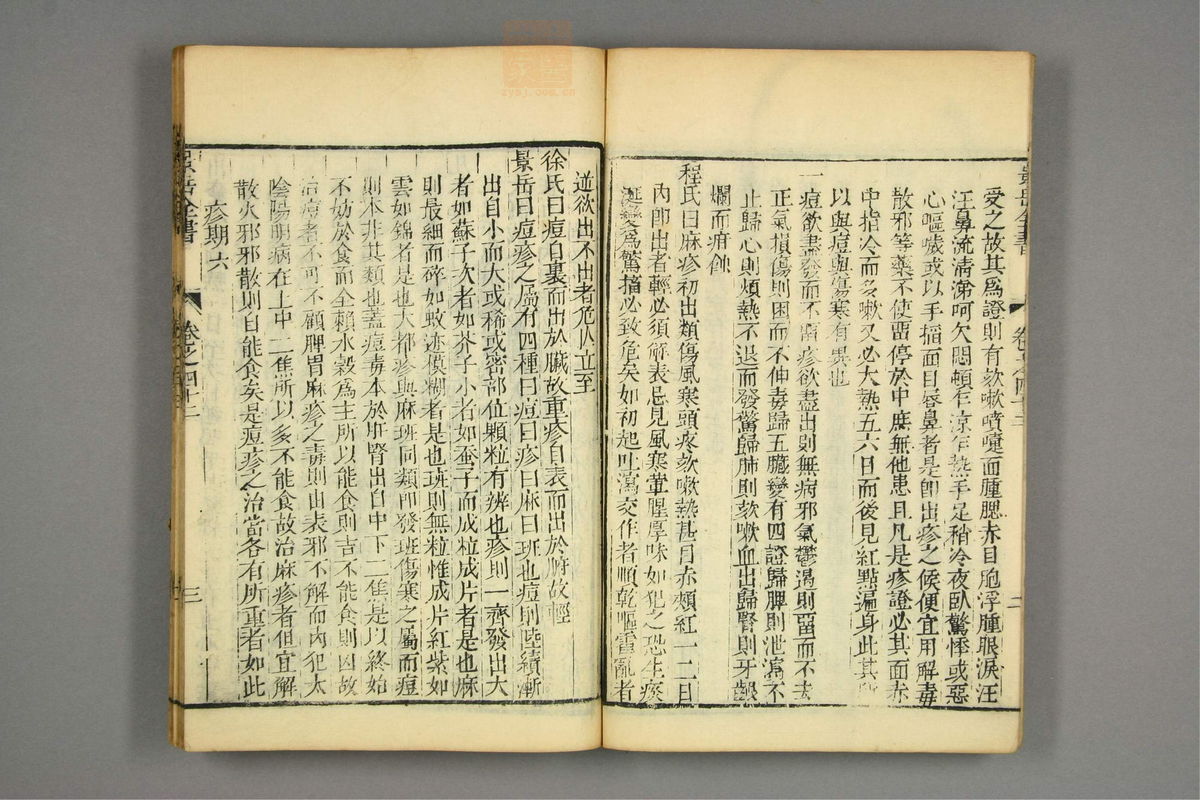 景岳全書
卷之四十二
二
受之故其爲證則有欬嗽噴嚏面腫腮赤目胞浮腫眼淚汪
汪鼻流清涕呵欠悶頓乍涼乍熱手足稍冷夜臥驚悸或惡
心嘔噦或以手掐面目唇鼻者是即出疹之候便宜用解毒
散邪等藥不使畱停於中庶無他患且凡是疹證必其面赤
中指冷而多嗽又必大熱五六日而後見紅點遍身此其
以與痘與傷寒有異也
一痘欲盡發而不畱疹欲盡出則無病邪氣鬱遏則畱而不去
正氣損傷則困而不伸毒歸五臟變有四證歸脾則泄瀉不
止歸心則煩熱不退而發驚歸肺則欬嗽血出歸腎則牙齦
爛而疳蝕
程氏曰麻疹初出類傷風寒頭疼欬嗽熱甚目赤頰紅一二日
內即出者輕必須解表忌見風寒葷腥厚味如犯之恐生痰
涎變爲驚搐必致危矣如初起吐瀉交作者順乾嘔霍亂者
逆欲出不出者危亾立至
徐氏曰痘自裏而出於臟故重疹自表而出於腑故輕
景岳曰痘疹之屬有四種曰痘曰疹曰麻曰班也痘則陸續漸
出自小而大或稀或密部位顆粒有辨也疹則一齊發出大
者如蘇子次者如芥子小者如蚕子而成粒成片者是也麻
則最細而碎如蚊迹模糊者是也班則無粒惟成片紅紫如
雲如錦者是也大都疹與麻班同類即發班傷寒之屬而痘
則本非其類也蓋痘毒本於肝腎出自中下二焦是以終始
不妨於食而全賴水穀爲主所以能食則吉不能食則凶故
治痘者不可不顧脾胃麻疹之毒則由表邪不解而內犯太
陰陽明病在上中二焦所以多不能食故治麻疹者但宜解
散火邪邪散則自能食矣是痘疹之治當各有所重者如此
疹期六
景岳全書
卷之四十二
三
zysj.com.cn